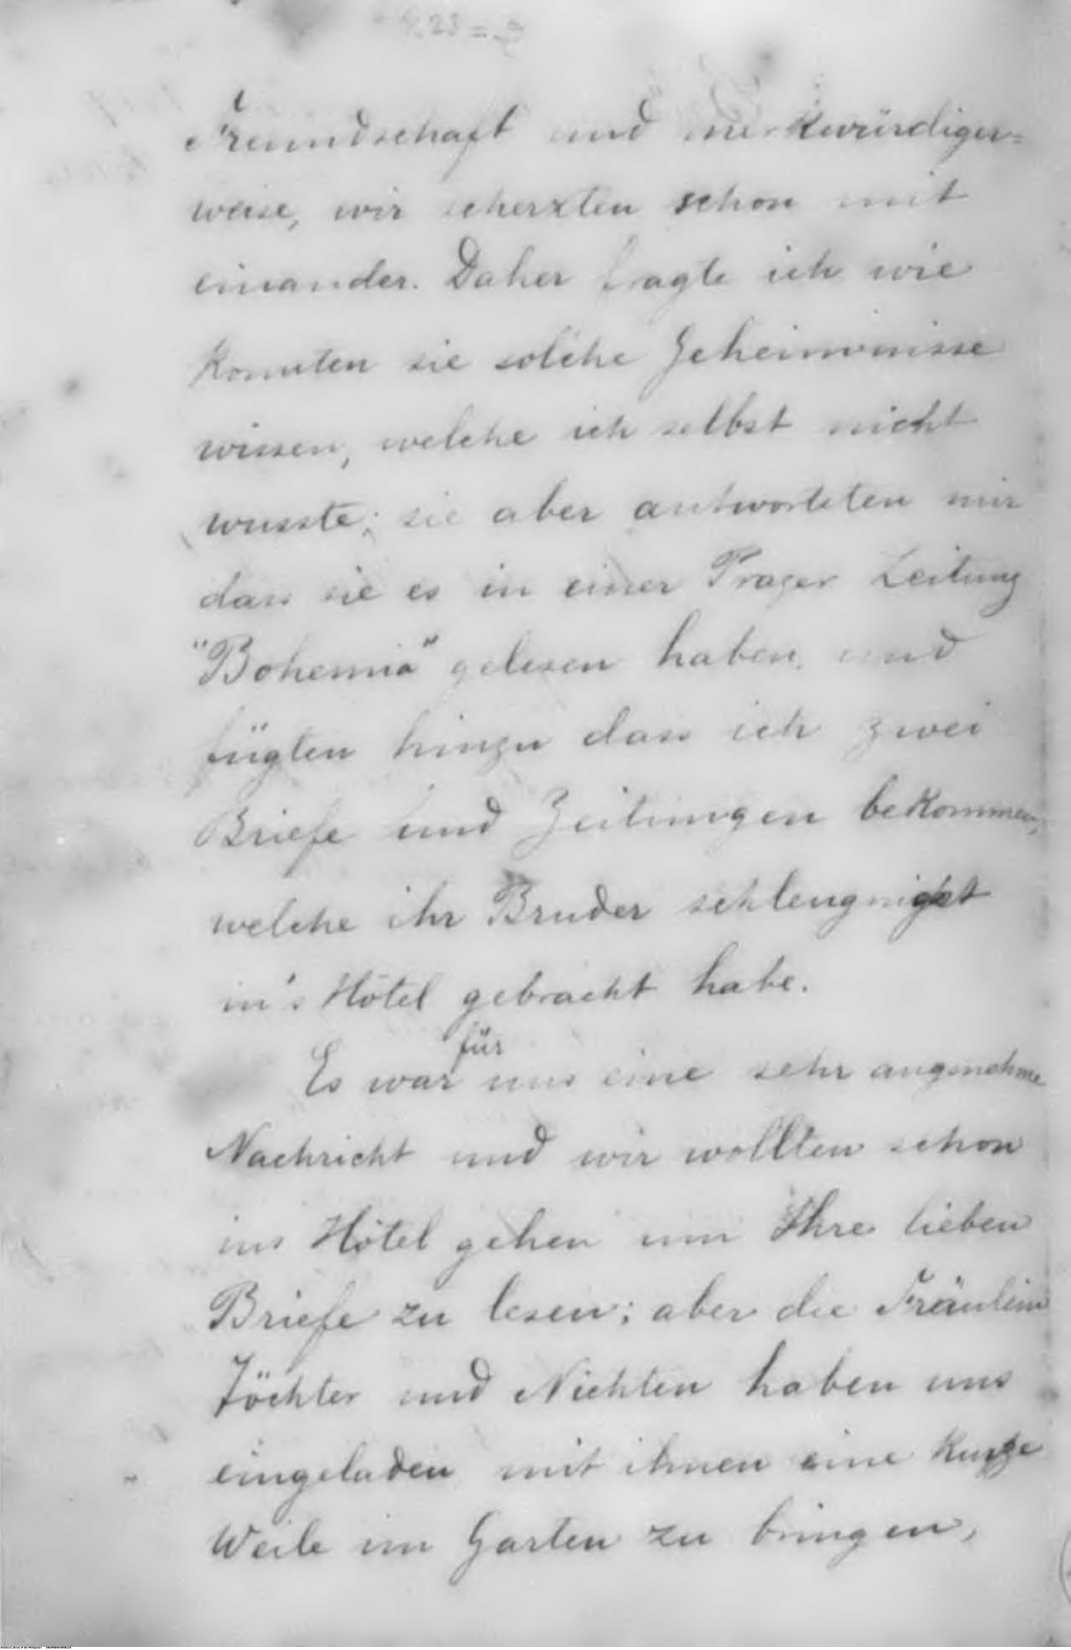 Freundschaft und merkwürdiger=
weise, wir scherzten schon mit
einander. Daher fragte ich wie
konnten sie solche Geheimnisse
wissen, welche ich selbst nicht
wusste; sie aber antworteten mir
dass sie es in einer Prager Zeitung
"Bohemia" gelesen haben, und
fügten hinzu dass ich zwei
Briefe und Zeitungen bekommen,
welche ihr Bruder
in's Hôtel gebracht habe.
für
Es war uns eine sehr angenehme
Nachricht und wir wollten schon
ins Hôtel gehen um Ihre lieben
Briefe zu lesen; aber die Fräulein
Töchter und Nichten haben uns
eingeladen mit ihnen eine kurze
Weile im Garten zu bringen,